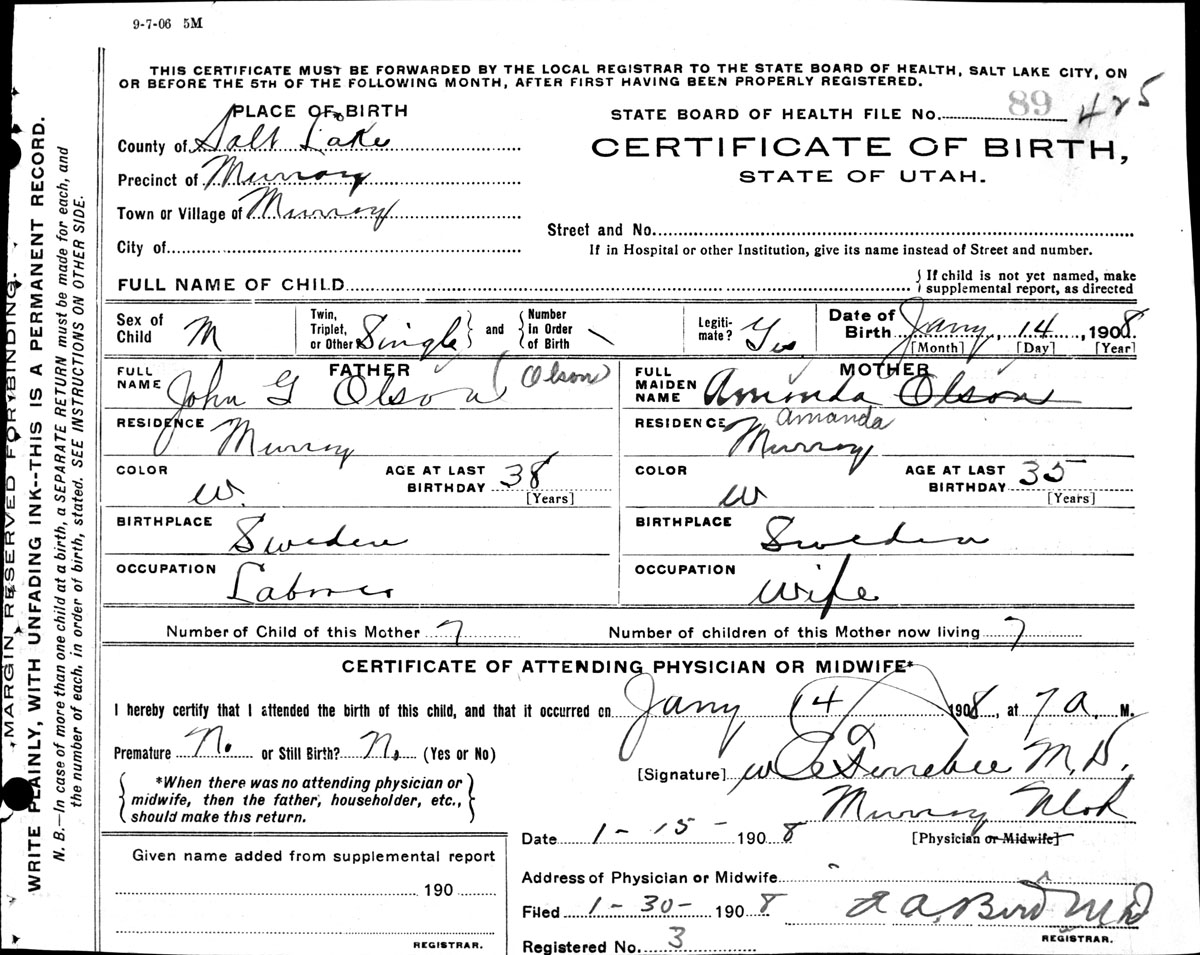 9-7-06 5M
THIS CERTIFICATE MUST BE FORWARDED BY THE LOCAL REGISTRAR TO THE STATE BOARD OF HEALTH, SALT LAKE CITY, ON
OR BEFORE THE 5TH OF THE FOLLOWING MONTH, AFTER FIRST HAVING BEEN PROPERLY REGISTERED.
PLACE OF BIRTH
STATE BOARD OF HEALTH FILE No. 89 425
County of Salt Lake
CERTIFICATE OF BIRTH,
Precinct of Murray
STATE OF UTAH.
Town or Village of Murray
Street and No.
City of
If in Hospital or other Institution, give its name instead of Street and number.
FULL NAME OF CHILD
If child is not yet named, make
supplemental report, as directed
Sex of Child M
Twin, Triplet, or Other Single and Number In Order of Birth
Legiti-mate? Yes
Date of Birth Jany, 14, 1908
[Month] [Day] [Year]
FATHER
FULL NAME John G Olson (Olson)
RESIDENCE Murray
COLOR W. AGE AT LAST BIRTHDAY 38
[Years]
BIRTHPLACE Sweden
OCCUPATION Laborer
MOTHER
FULL MAIDEN NAME Amanda Olson
Amanda
RESIDENCE Murray
COLOR W AGE AT LAST BIRTHDAY 35
[Years]
BIRTHPLACE Sweden
OCCUPATION Wife
Number of Child of this Mother 7 Number of children of this Mother now living 7
CERTIFICATE OF ATTENDING PHYSICIAN OR MIDWIFE*
I hereby certify that I attended the birth of this child, and that it occurred on Jany 14 1908, at 7 a, M.
Premature No. or Still Birth? No. (Yes or No)
[Signature] M.D.
*When there was no attending physician or
midwife, then the father, householder, etc.,
should make this return.
Murray Utah
Date 1-15- 1908 [Physician or Midwife]
Given name added from supplemental report
190
REGISTRAR.
Address of Physician or Midwife
Filed 1-30- 1908 Bird MD
REGISTRAR.
Registered No. 3
MARGIN RESERVED FOR BINDING.
WRITE PLAINLY, WITH UNFADING INK--THIS IS A PERMANENT RECORD.
N. B.—In case of more than one child at a birth, a SEPARATE RETURN must be made for each, and
the number of each, in order of birth, stated. SEE INSTRUCTIONS ON OTHER SIDE.